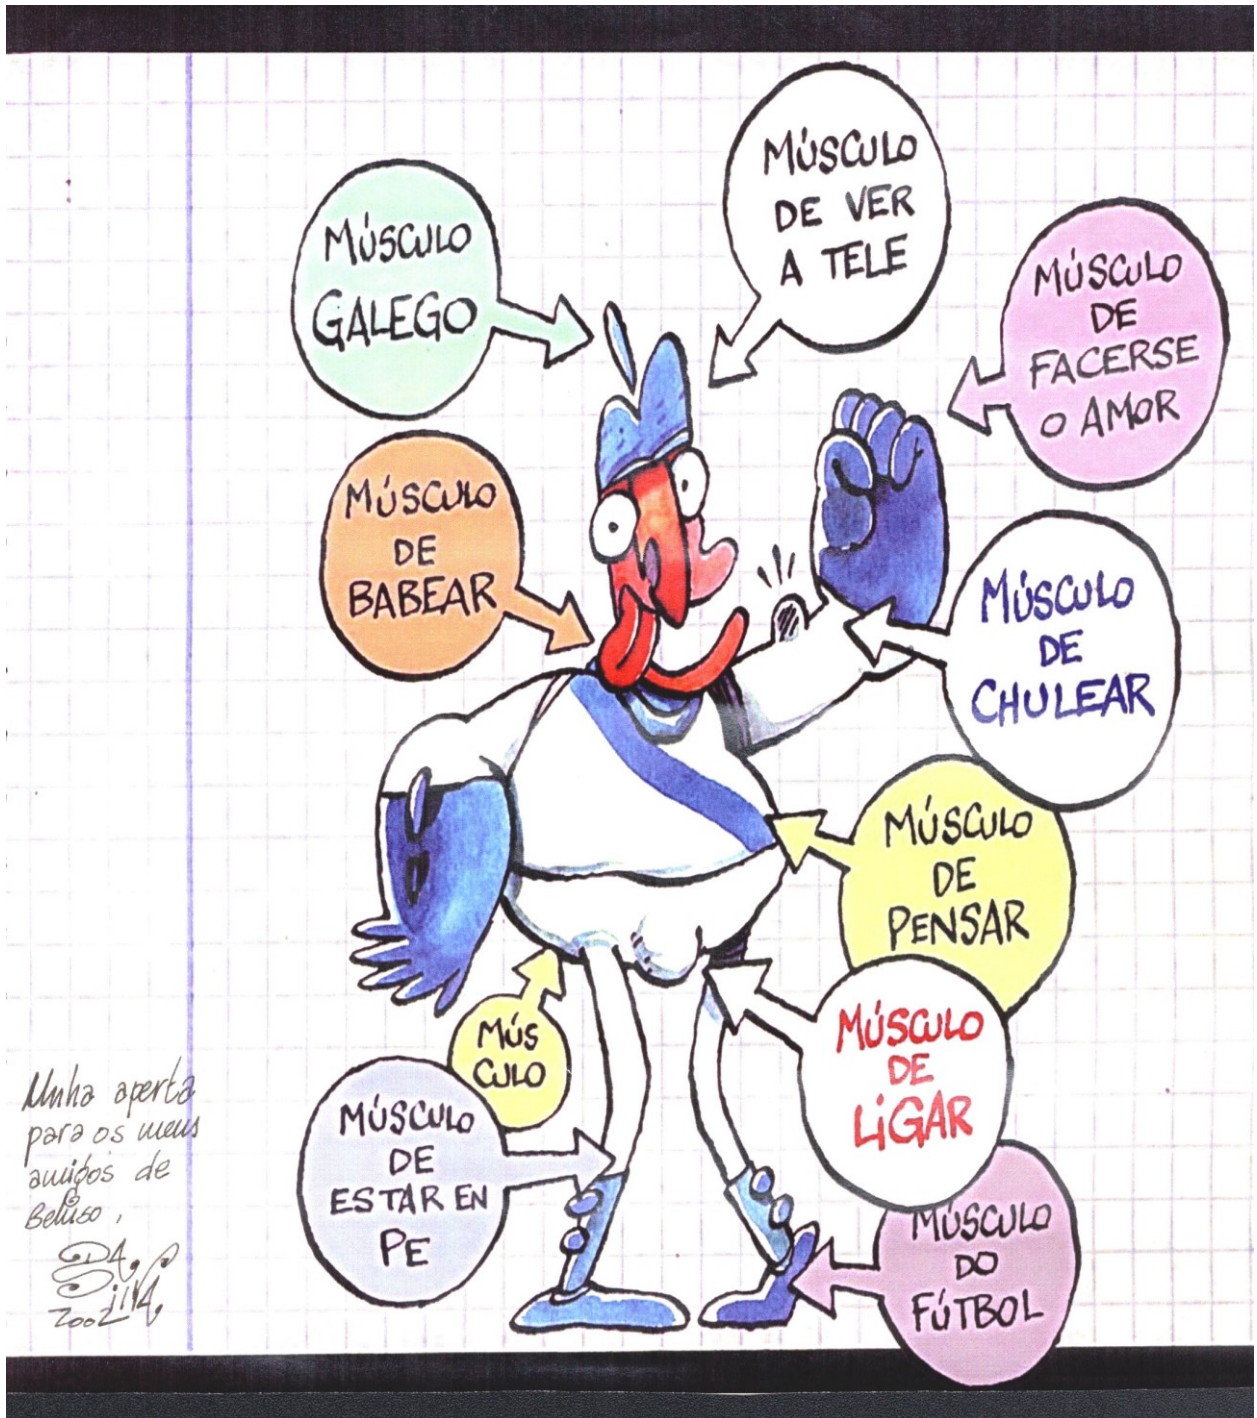 MÚSCULO
GALEGO
MÚSCULO
DE VER
A TELE
MÚSCULO
DE
FACERSE
O AMOR
MÚSCULO
DE
BABEAR
MÚSCULO
DE
CHULEAR
MÚSCULO
DE
PENSAR
MÚS
CULO
MÚSCULO
DE
LiGAR
MÚSCULO
DE
ESTAR EN
PE
MÚSCULO
DO
FÚTBOL
Unha aperta
para os meus
amigos de
Beluso,
DA
SiLVA
2002